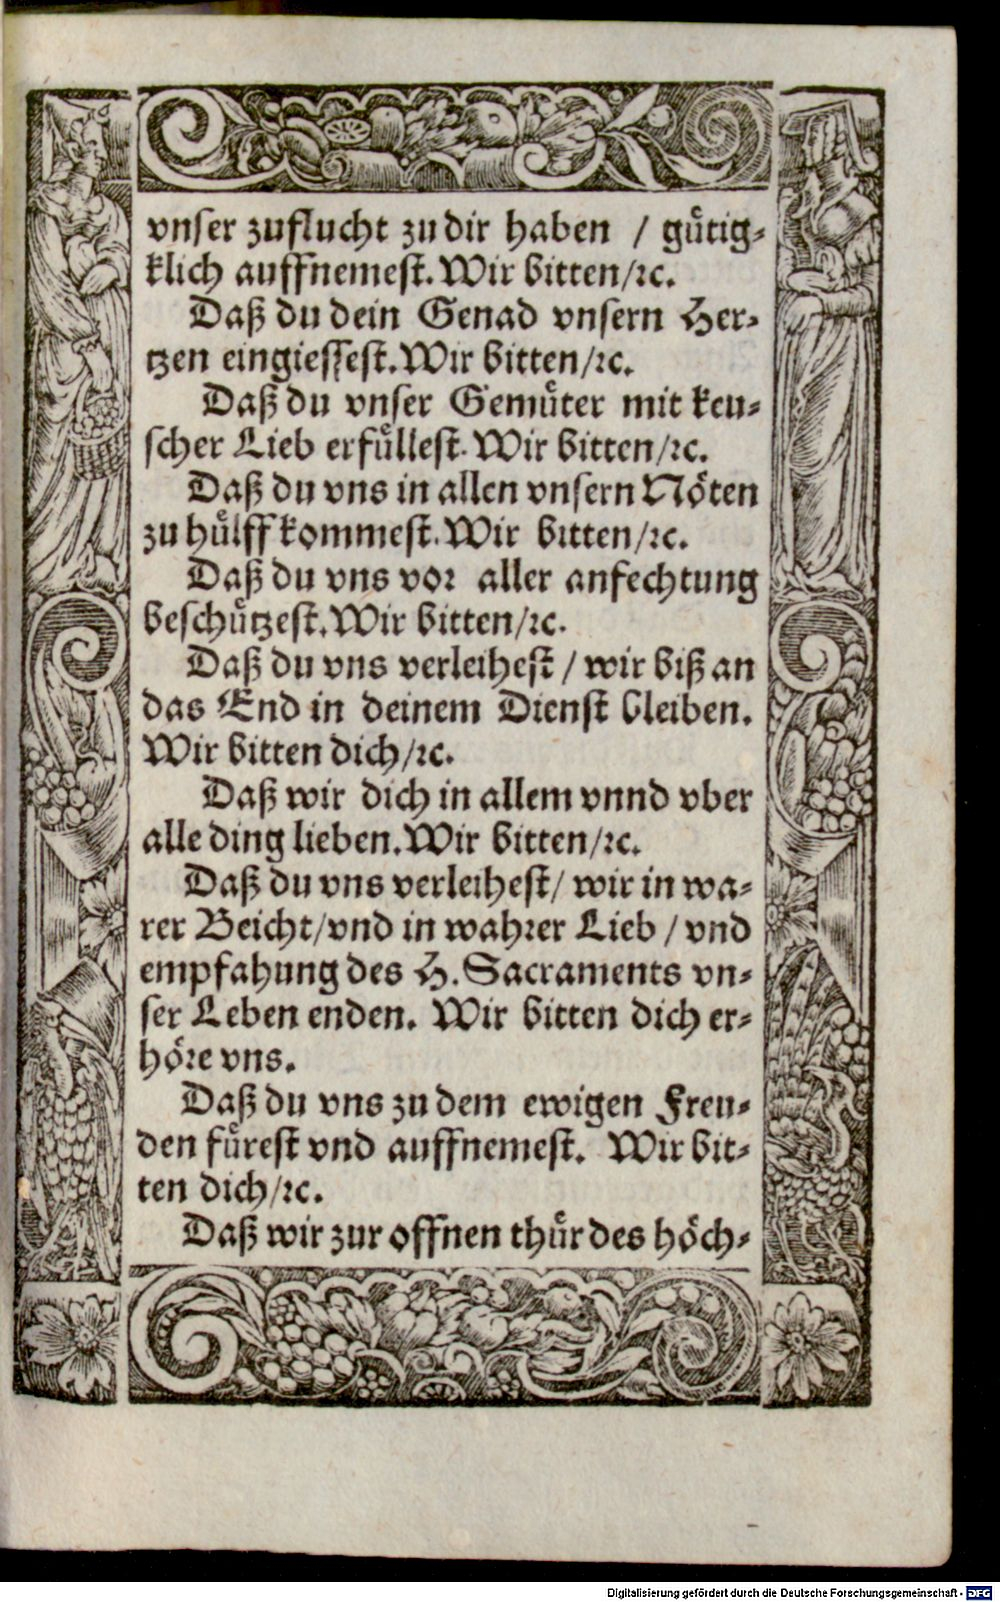 vnser zuflucht zu dir haben / guͤtig-
klich auffnemest. Wir bitten/ꝛc.
Daß du dein Genad vnsern Her-
tzen eingiessest. Wir bitten/ꝛc.
Daß du vnser Gemuͤter mit keu-
scher Lieb erfuͤllest. Wir bitten/ꝛc.
Daß du vns in allen vnsern Noͤten
zu huͤlff kommest. Wir bitten/ꝛc.
Daß du vns vor aller anfechtung
beschuͤtzest. Wir bitten/ꝛc.
Daß du vns verleihest / wir biß an
das End in deinem Dienst bleiben.
Wir bitten dich/ꝛc.
Daß wir dich in allem vnnd vber
alle ding lieben. Wir bitten/ꝛc.
Daß du vns verleihest/ wir in wa-
rer Beicht/vnd in wahrer Lieb / vnd
empfahung des H. Sacraments vn-
ser Leben enden. Wir bitten dich er-
hoͤre vns.
Daß du vns zu dem ewigen Freu-
den fuͤrest vnd auffnemest. Wir bit-
ten dich/ꝛc.
Daß wir zur offnen thuͤr des hoͤch-
Digitalisierung gefördert durch die Deutsche Forschungsgemeinschaft - DFG